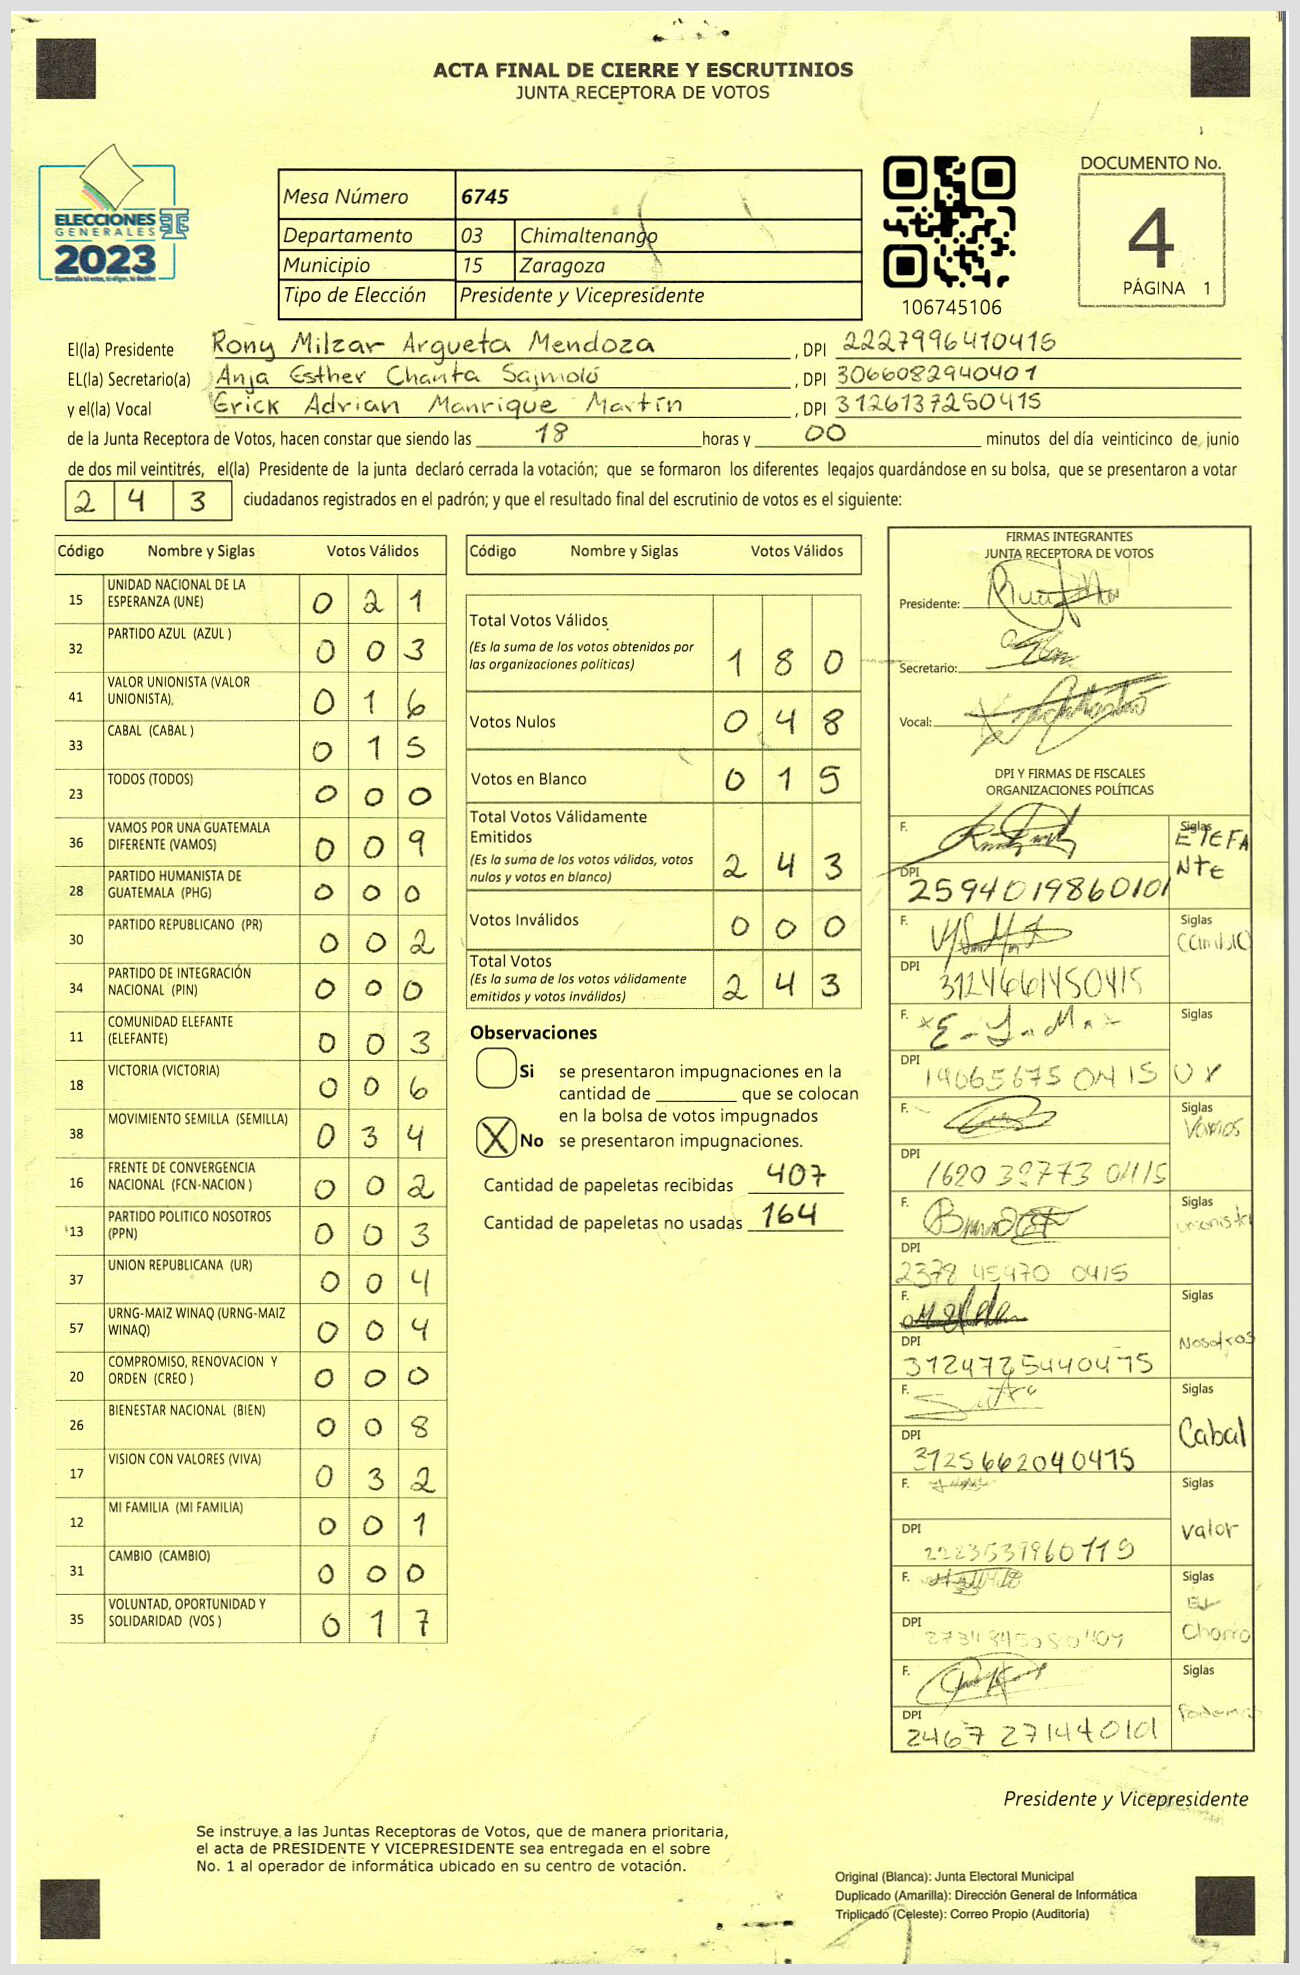 ACTA FINAL DE CIERRE Y ESCRUTINIOS
JUNTA RECEPTORA DE VOTOS
ELECCIONES
GENERALES
2023
Mesa Número 6745
Departamento 03 Chimaltenango
Municipio 15 Zaragoza
Tipo de Elección Presidente y Vicepresidente
106745106
DOCUMENTO No.
4
PÁGINA 1
El(la) Presidente Rony Milzar Argueta Mendoza , DPI 2227996410415
EL(la) Secretario(a) Anja Esther Chanta Sajmoló , DPI 3066082940401
y el(la) Vocal Erick Adrian Manrique Martín , DPI 3126137250415
de la Junta Receptora de Votos, hacen constar que siendo las 18 horas y 00 minutos del día veinticinco de junio
de dos mil veintitrés, el(la) Presidente de la junta declaró cerrada la votación; que se formaron los diferentes legajos guardándose en su bolsa, que se presentaron a votar
2 4 3 ciudadanos registrados en el padrón; y que el resultado final del escrutinio de votos es el siguiente:
Código Nombre y Siglas Votos Válidos
15 UNIDAD NACIONAL DE LA
ESPERANZA (UNE) 0 2 1
32 PARTIDO AZUL (AZUL ) 0 0 3
41 VALOR UNIONISTA (VALOR
UNIONISTA), 0 1 6
33 CABAL (CABAL ) 0 1 5
23 TODOS (TODOS) 0 0 0
36 VAMOS POR UNA GUATEMALA
DIFERENTE (VAMOS) 0 0 9
28 PARTIDO HUMANISTA DE
GUATEMALA (PHG) 0 0 0
30 PARTIDO REPUBLICANO (PR) 0 0 2
34 PARTIDO DE INTEGRACIÓN
NACIONAL (PIN) 0 0 0
11 COMUNIDAD ELEFANTE
(ELEFANTE) 0 0 3
18 VICTORIA (VICTORIA) 0 0 6
38 MOVIMIENTO SEMILLA (SEMILLA) 0 3 4
16 FRENTE DE CONVERGENCIA
NACIONAL (FCN-NACION ) 0 0 2
13 PARTIDO POLITICO NOSOTROS
(PPN) 0 0 3
37 UNION REPUBLICANA (UR) 0 0 4
57 URNG-MAIZ WINAQ (URNG-MAIZ
WINAQ) 0 0 4
20 COMPROMISO, RENOVACION Y
ORDEN (CREO ) 0 0 0
26 BIENESTAR NACIONAL (BIEN) 0 0 8
17 VISION CON VALORES (VIVA) 0 3 2
12 MI FAMILIA (MI FAMILIA) 0 0 1
31 CAMBIO (CAMBIO) 0 0 0
35 VOLUNTAD, OPORTUNIDAD Y
SOLIDARIDAD (VOS ) 0 1 7
Código Nombre y Siglas Votos Válidos
Total Votos Válidos
(Es la suma de los votos obtenidos por
las organizaciones políticas) 1 8 0
Votos Nulos 0 4 8
Votos en Blanco 0 1 5
Total Votos Válidamente
Emitidos
(Es la suma de los votos válidos, votos
nulos y votos en blanco) 2 4 3
Votos Inválidos 0 0 0
Total Votos
(Es la suma de los votos válidamente
emitidos y votos inválidos) 2 4 3
Observaciones
Si se presentaron impugnaciones en la
cantidad de ________ que se colocan
en la bolsa de votos impugnados
X No se presentaron impugnaciones.
Cantidad de papeletas recibidas 407
Cantidad de papeletas no usadas 164
FIRMAS INTEGRANTES
JUNTA RECEPTORA DE VOTOS
Presidente:
Secretario:
Vocal:
DPI Y FIRMAS DE FISCALES
ORGANIZACIONES POLÍTICAS
F. Siglas
DPI 2594019860101
F. Siglas
DPI 3124661450415
F. Siglas
DPI 19065675 0415 UR
F. Siglas Vamos
DPI 1620 32773 0415
F. Siglas unionista
DPI 2378 45470 0415
F. Siglas Nosotros
DPI 3124725440415
F. Siglas Cabal
DPI 3125662040415
F. Siglas Valor
DPI 2223539960115
F. Siglas
Chorro
DPI
F. Siglas Podemos
DPI 2467 27144 0101
Presidente y Vicepresidente
Se instruye a las Juntas Receptoras de Votos, que de manera prioritaria,
el acta de PRESIDENTE Y VICEPRESIDENTE sea entregada en el sobre
No. 1 al operador de informática ubicado en su centro de votación.
Original (Blanca): Junta Electoral Municipal
Duplicado (Amarilla): Dirección General de Informática
Triplicado (Celeste): Correo Propio (Auditoría)